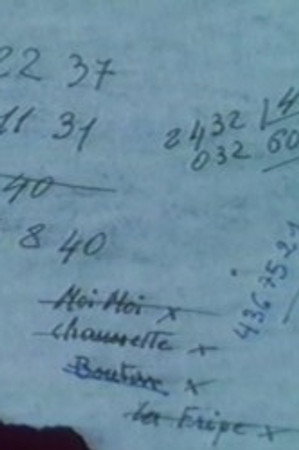 22 37
11 31
40
8 40
2432 | 4
032 60
43675 21
Moi Moi x
chaussette x
Boutixe x
La Fripe x